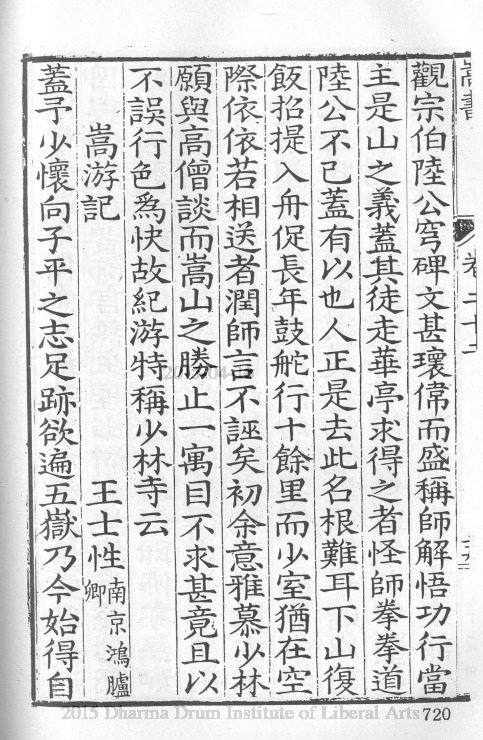 嵩書
卷二十二
觀宗伯陸公穹碑文甚瓌偉而盛稱師解悟功行當
主是山之義蓋其徒走華亭求得之者怪師拳拳道
陸公不已蓋有以也人正是去此名根難耳下山復
飯招提入舟促長年鼓舵行十餘里而少室猶在空
際依依若相送者潤師言不誣矣初余意雅慕少林
願與高僧談而嵩山之勝止一寓目不求甚竟且以
不誤行色為快故紀游特稱少林寺云
嵩游記 王士性 南京鴻臚卿
蓋予少懷向子平之志足跡欲遍五嶽乃今始得自
2015 Dharma Drum Institute of Liberal Arts
720